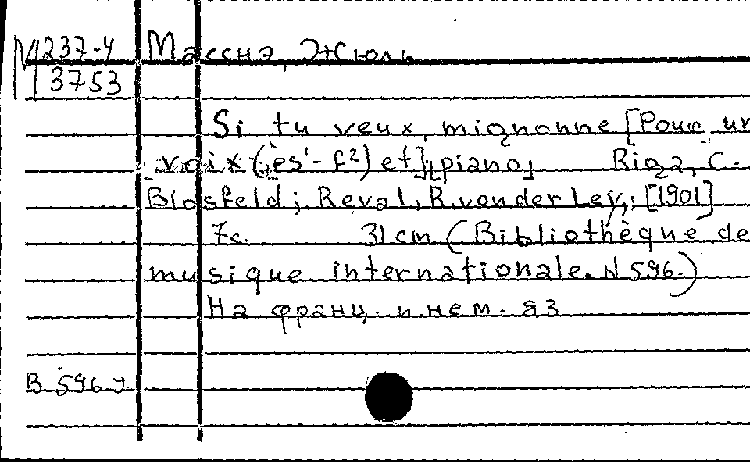 М 237-4 Массиэ, Жюль
3753
Si tu veux, mignonne [Pour un
voix (es'-f²) et] piano Riga, C.
Blosfeld; Reval, R. von der Ley, [1901]
7c. 31 cm (Bibliothèque de
musique internationale. N 596.)
На франц. и нем. яз
В 596